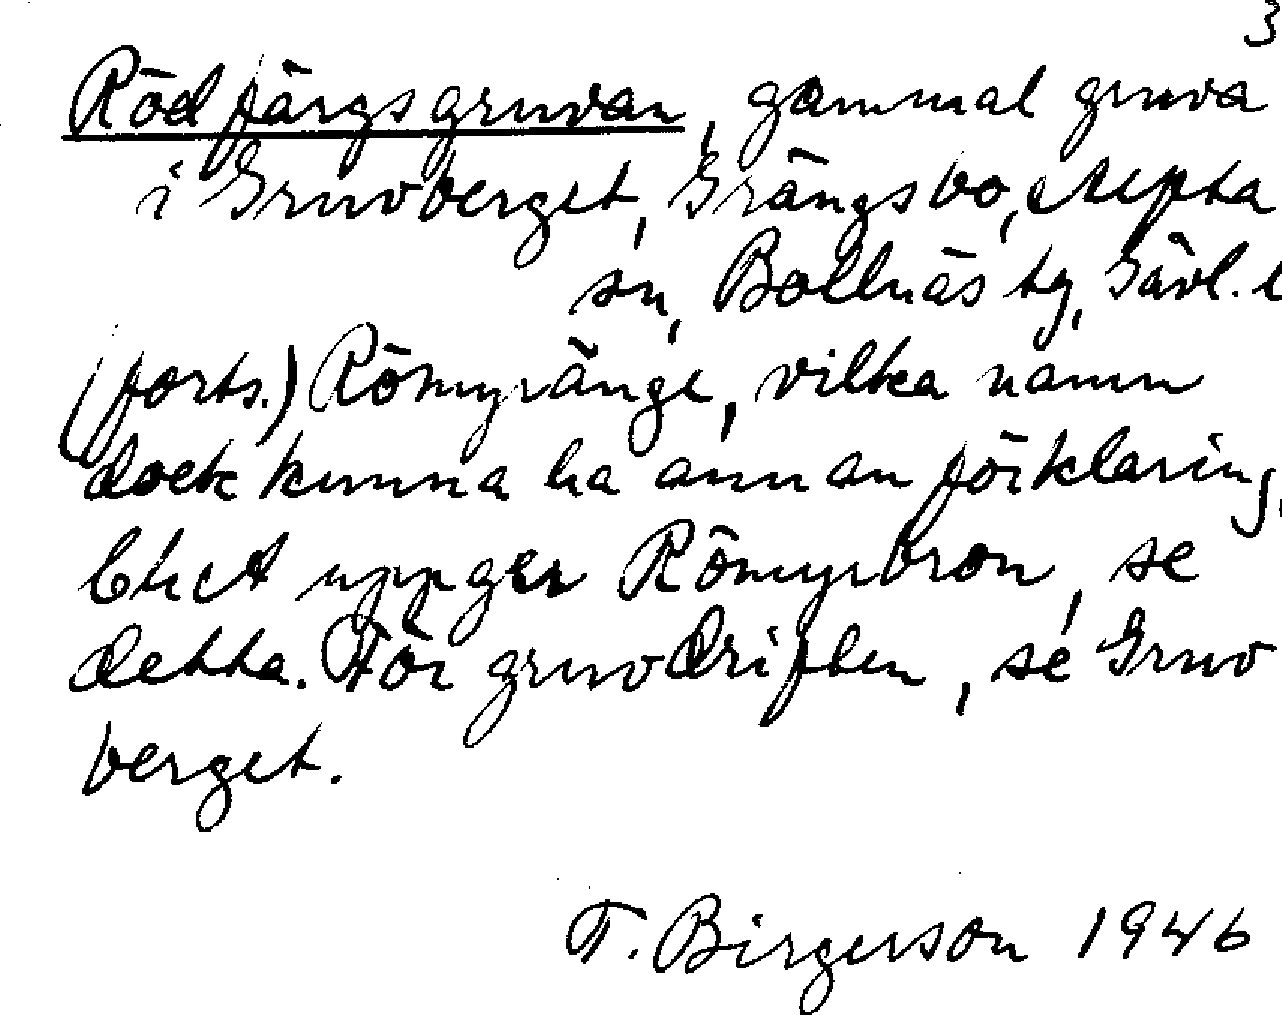 3
Rödfärgsgruvan, gammal gruva
i Gruvberget, Grängsbo, Alfta
sn, Bollnäs tg, Gävl. l
(forts.) Römyränge, vilka namn
dock kunna ha annan förklaring,
uppger Römyrbron, se
detta. För gruvdriften, se Gruv
berget.
T. Birgerson 1946